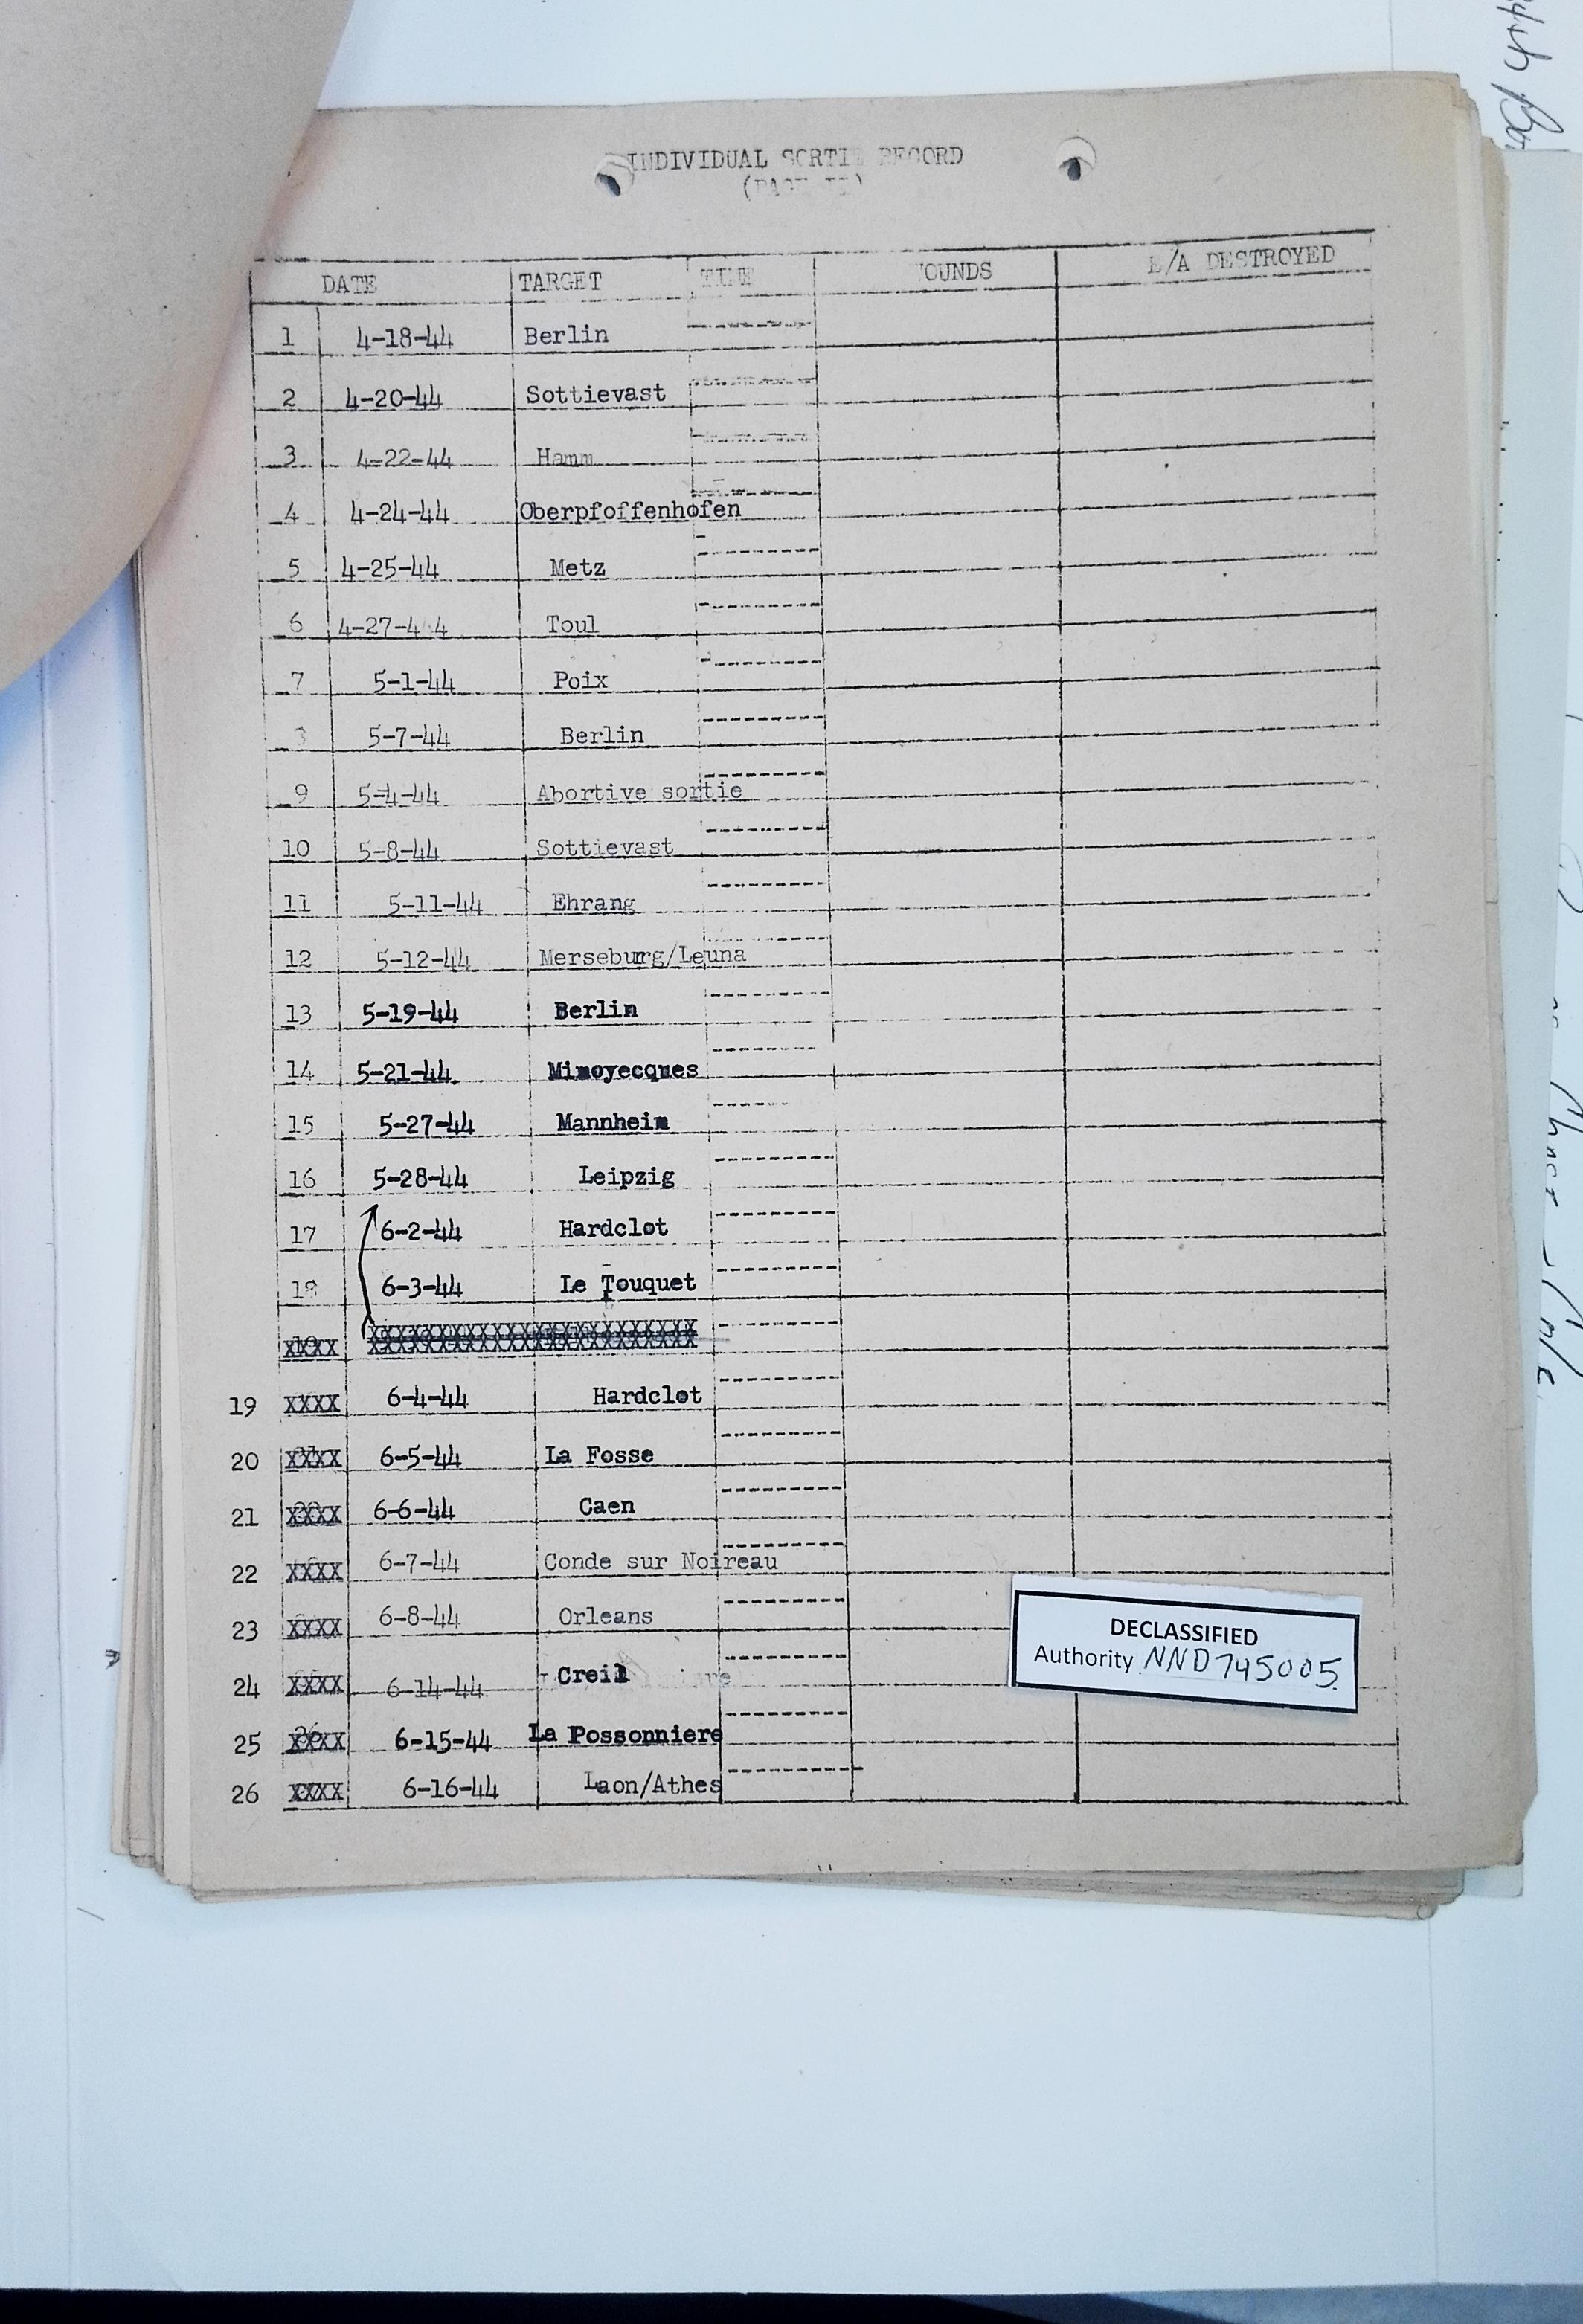 INDIVIDUAL SORTIE RECORD
(PAGE II)
DATE TARGET TIME OUNDS E/A DESTROYED
1 4-18-44 Berlin
2 4-20-44 Sottievast
3 4-22-44 Hamm
4 4-24-44 Oberpfoffenhofen
5 4-25-44 Metz
6 4-27-44 Toul
7 5-1-44 Poix
8 5-7-44 Berlin
9 5-4-44 Abortive sortie
10 5-8-44 Sottievast
11 5-11-44 Ehrang
12 5-12-44 Merseburg/Leuna
13 5-19-44 Berlin
14 5-21-44 Mimoyecques
15 5-27-44 Mannheim
16 5-28-44 Leipzig
17 6-2-44 Hardclot
18 6-3-44 Le Touquet
XXXX XXXXXXXXXXXXXXXXXXXXXXXX
19 XXXX 6-4-44 Hardclot
20 XXXX 6-5-44 La Fosse
21 XXXX 6-6-44 Caen
22 XXXX 6-7-44 Conde sur Noireau
23 XXXX 6-8-44 Orleans
24 XXXX 6-14-44 Creil
25 XXXX 6-15-44 La Possonniere
26 XXXX 6-16-44 Laon/Athes
DECLASSIFIED
Authority NND745005